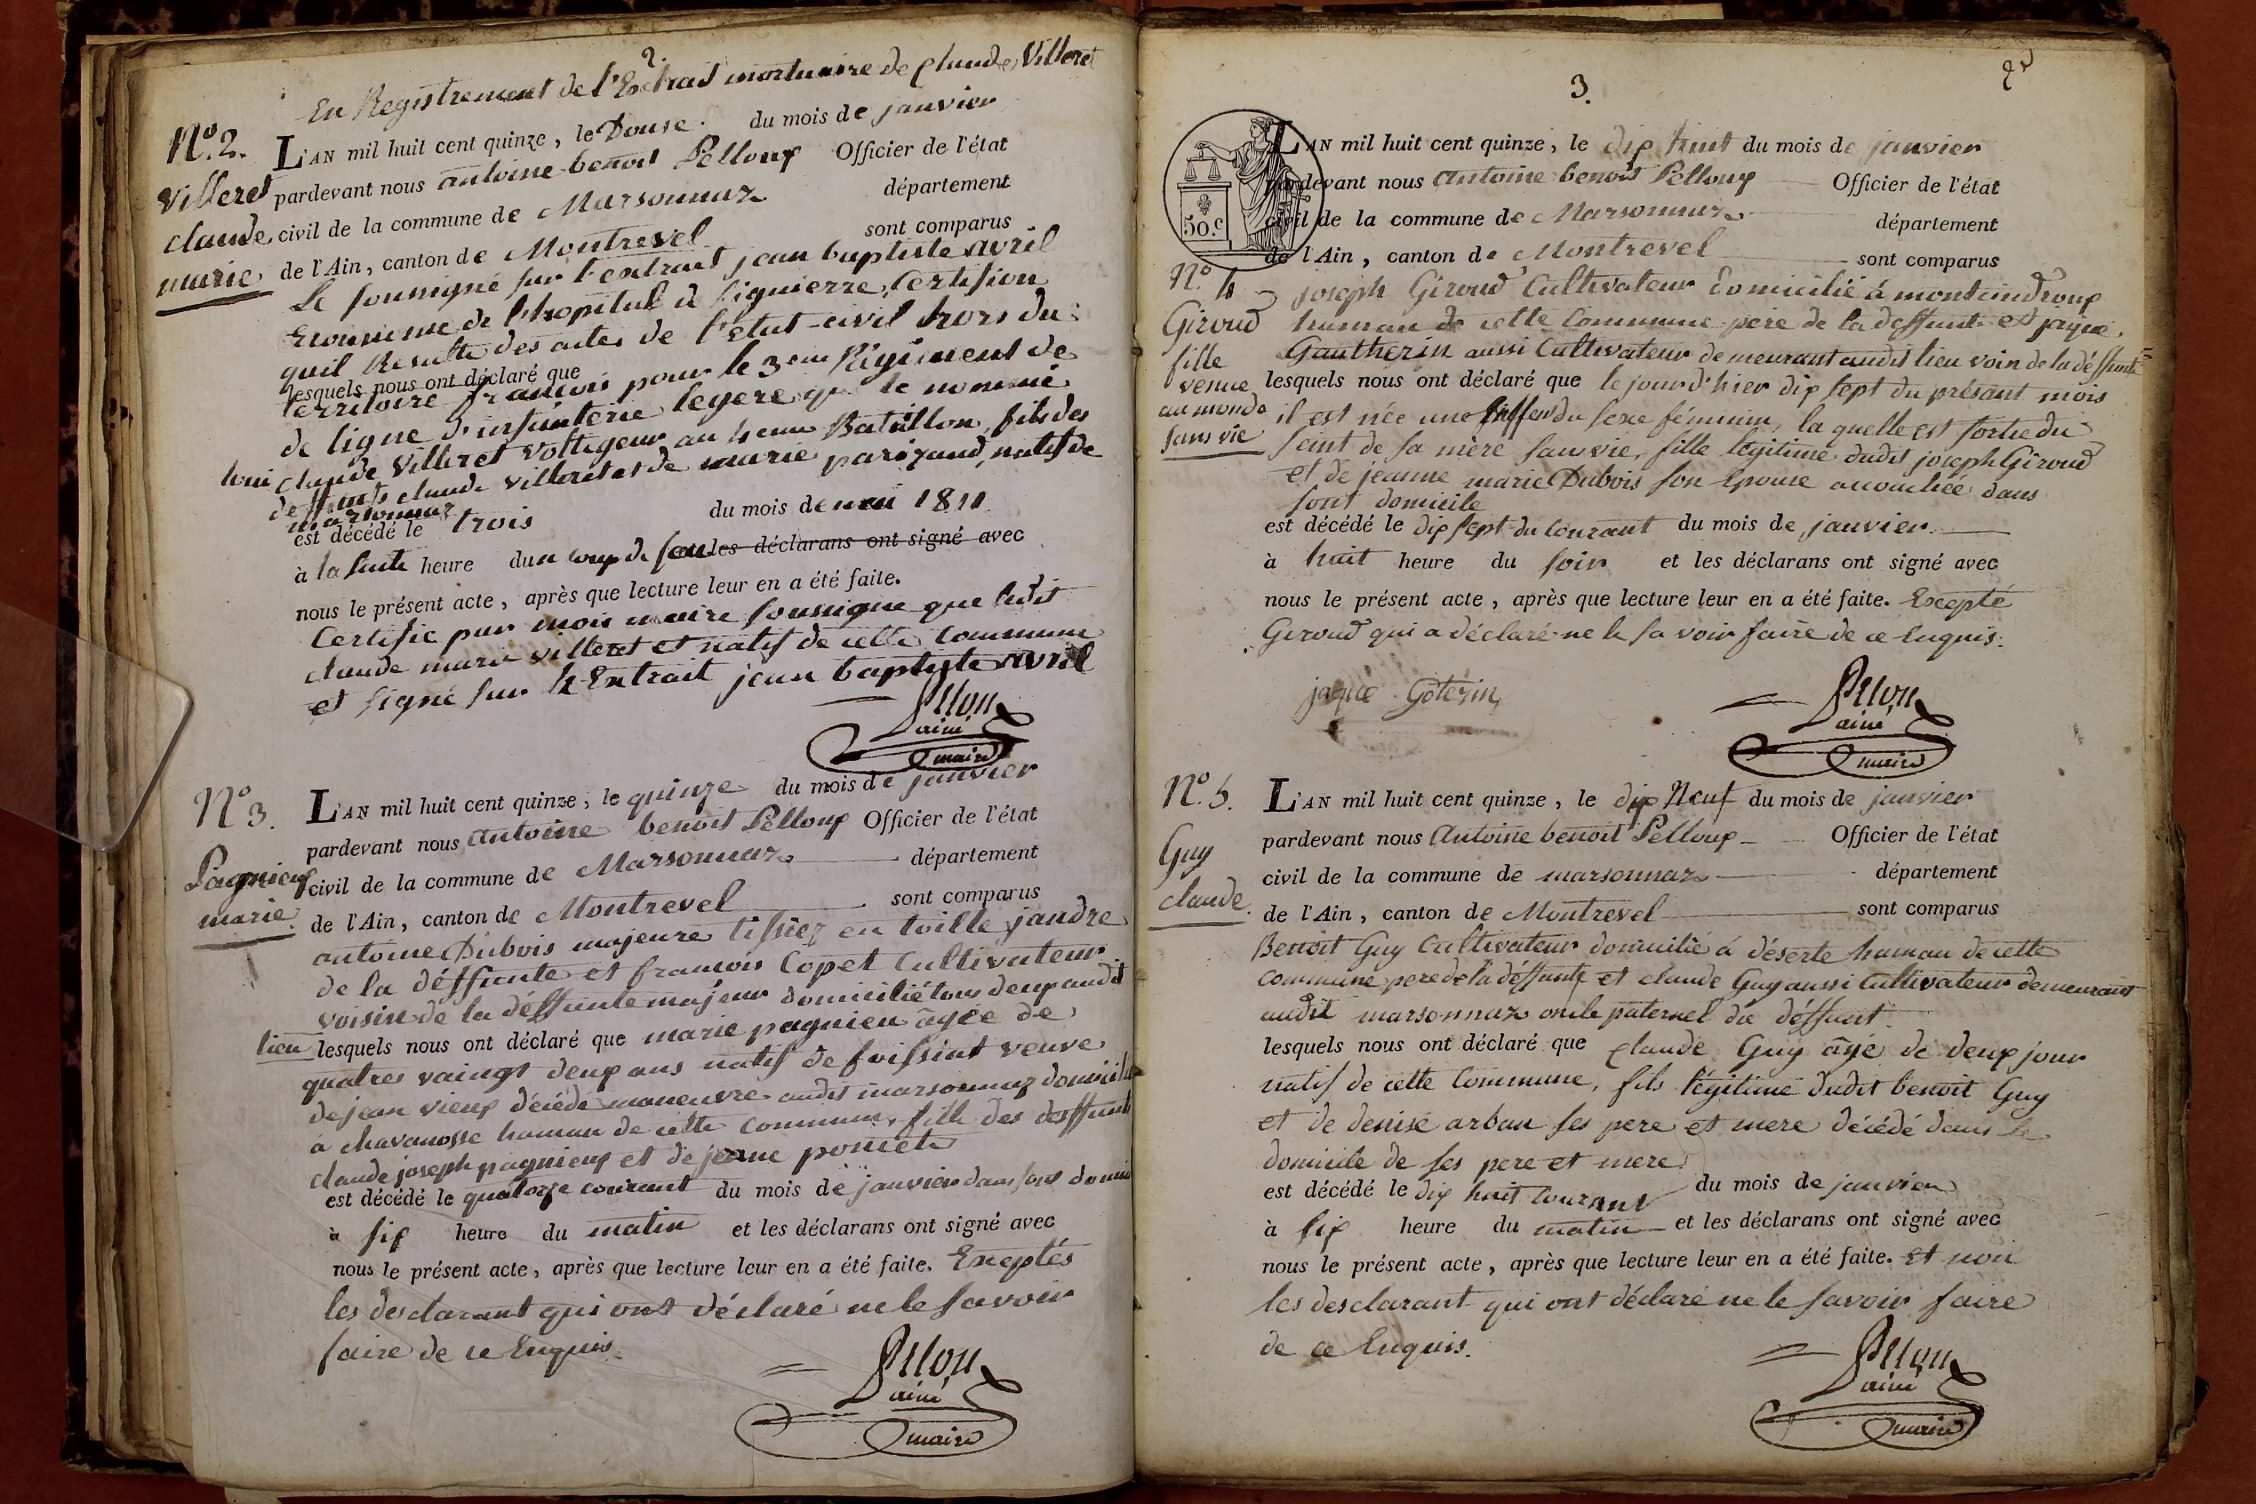 2.
En Registrement de l'Extrait mortuaire de Claude Villeret
N.º 2.
Villeret
claude
marie
L'AN mil huit cent quinze, le Douse. du mois de janvier
pardevant nous antoine benoit Pelloux Officier de l'état
civil de la commune de Marsonnaz département
de l'Ain, canton de Montrevel sont comparus
Le soussigné sur l'extrait jean baptiste avril
Econnome de l'hopital de figuierre, Certifion
quil Resulte des actes de l'état-civil hors du
lesquels nous ont déclaré que
territoire francois pour le 3eme Régiment de
de ligne d'infanterie legere que le nommé
claude Villeret voltigeur au 4eme Bataillon, fils des
deffunts claude villeret et de marie parizaud, natif de
marsonnaz
est décédé le trois du mois de mai 1811
à la suite heure dun coup de feu et les déclarans ont signé avec
nous le présent acte, après que lecture leur en a été faite.
Certifie par mois maire soussigne que ledit
claude marie villeret et natif de cette commune
et signé sur l'Extrait jean baptiste avril
Pellou
ainé
maire
Nº 3.
Pagnieux
marie
L'AN mil huit cent quinze, le quinze du mois de janvier
pardevant nous antoine benoit Pelloux Officier de l'état
civil de la commune de Marsonnaz département
de l'Ain, canton de Montrevel sont comparus
antoine Dubois majeure tissiez en toille jandre
de la déffunte et francois Copet Cultivateur
voisin de la déffunte majeur domicilié tous deux audit
lieu lesquels nous ont déclaré que marie pagnieu âgée de
quatres vaingt deux ans natif de foissiat veuve
de jean vieux décédé manœuvre audit marsonnaz domicilié
à chavanosse hamau de cette commune, fille des deffunts
claude joseph pagnieux et de jeanne poncete
est décédé le quatorze courant du mois de janvier dans sont domici
à six heure du matin et les déclarans ont signé avec
nous le présent acte, après que lecture leur en a été faite. Exceptés
les desclarant qui ont déclaré ne le savoir
faire de ce Enquis.
Pellou
ainé
maire
3.
50.c
N.º 4
Giroud
fille
venue
au monde
sans vie
L'AN mil huit cent quinze, le dix huit du mois de janvier
pardevant nous antoine benoit Pelloux Officier de l'état
civil de la commune de Marsonnaz département
de l'Ain, canton de Montrevel sont comparus
joseph Giroud Cultivateur domicilié á montaindroux
hamau de cette Commune pere de la deffunte et jaque
Gautherin aussi Cultivateur demeurant audit lieu voin de la déffunte
lesquels nous ont déclaré que le jourd'hier dix sept du présant mois
il est née une enffan du sexe féminim, la quelle est sortie du
saint de sa mère sans vie, fille légitime dudit joseph Giroud
et de jeanne marie Dubois son Epouse acouchée dans
sont domicile
est décédé le dix sept du Courant du mois de janvier
à huit heure du soir et les déclarans ont signé avec
nous le présent acte, après que lecture leur en a été faite. Excepté
Geroud qui a déclaré ne le sa voir faire de ce Enquis.
jaque Goterin
Pellou
ainé
maire
N.º 5.
Guy
claude.
L'AN mil huit cent quinze, le dix Neuf du mois de janvier
pardevant nous Antoine benoit Pelloux Officier de l'état
civil de la commune de marsonnaz département
de l'Ain, canton de Montrevel sont comparus
Benoit Guy Cultivateur domicilié á déserte hamau de cette
commune pere de la déffunt et claude Guy aussi Cultivateur demeurant
audit marsonnaz oncle paternel du déffunt.
lesquels nous ont déclaré que claude Guy âge de deux jour
natif de cette Commune, fils légitime dudit benoit Guy
et de denise arban ses pere et mere décédé dans le
domicile de ses pere et mere
est décédé le dix huit Courant du mois de janvier
à six heure du matin et les déclarans ont signé avec
nous le présent acte, après que lecture leur en a été faite. et non
les desclarant qui ont déclaré ne le savoir faire
de ce Enquis.
Pellou
ainé
maire